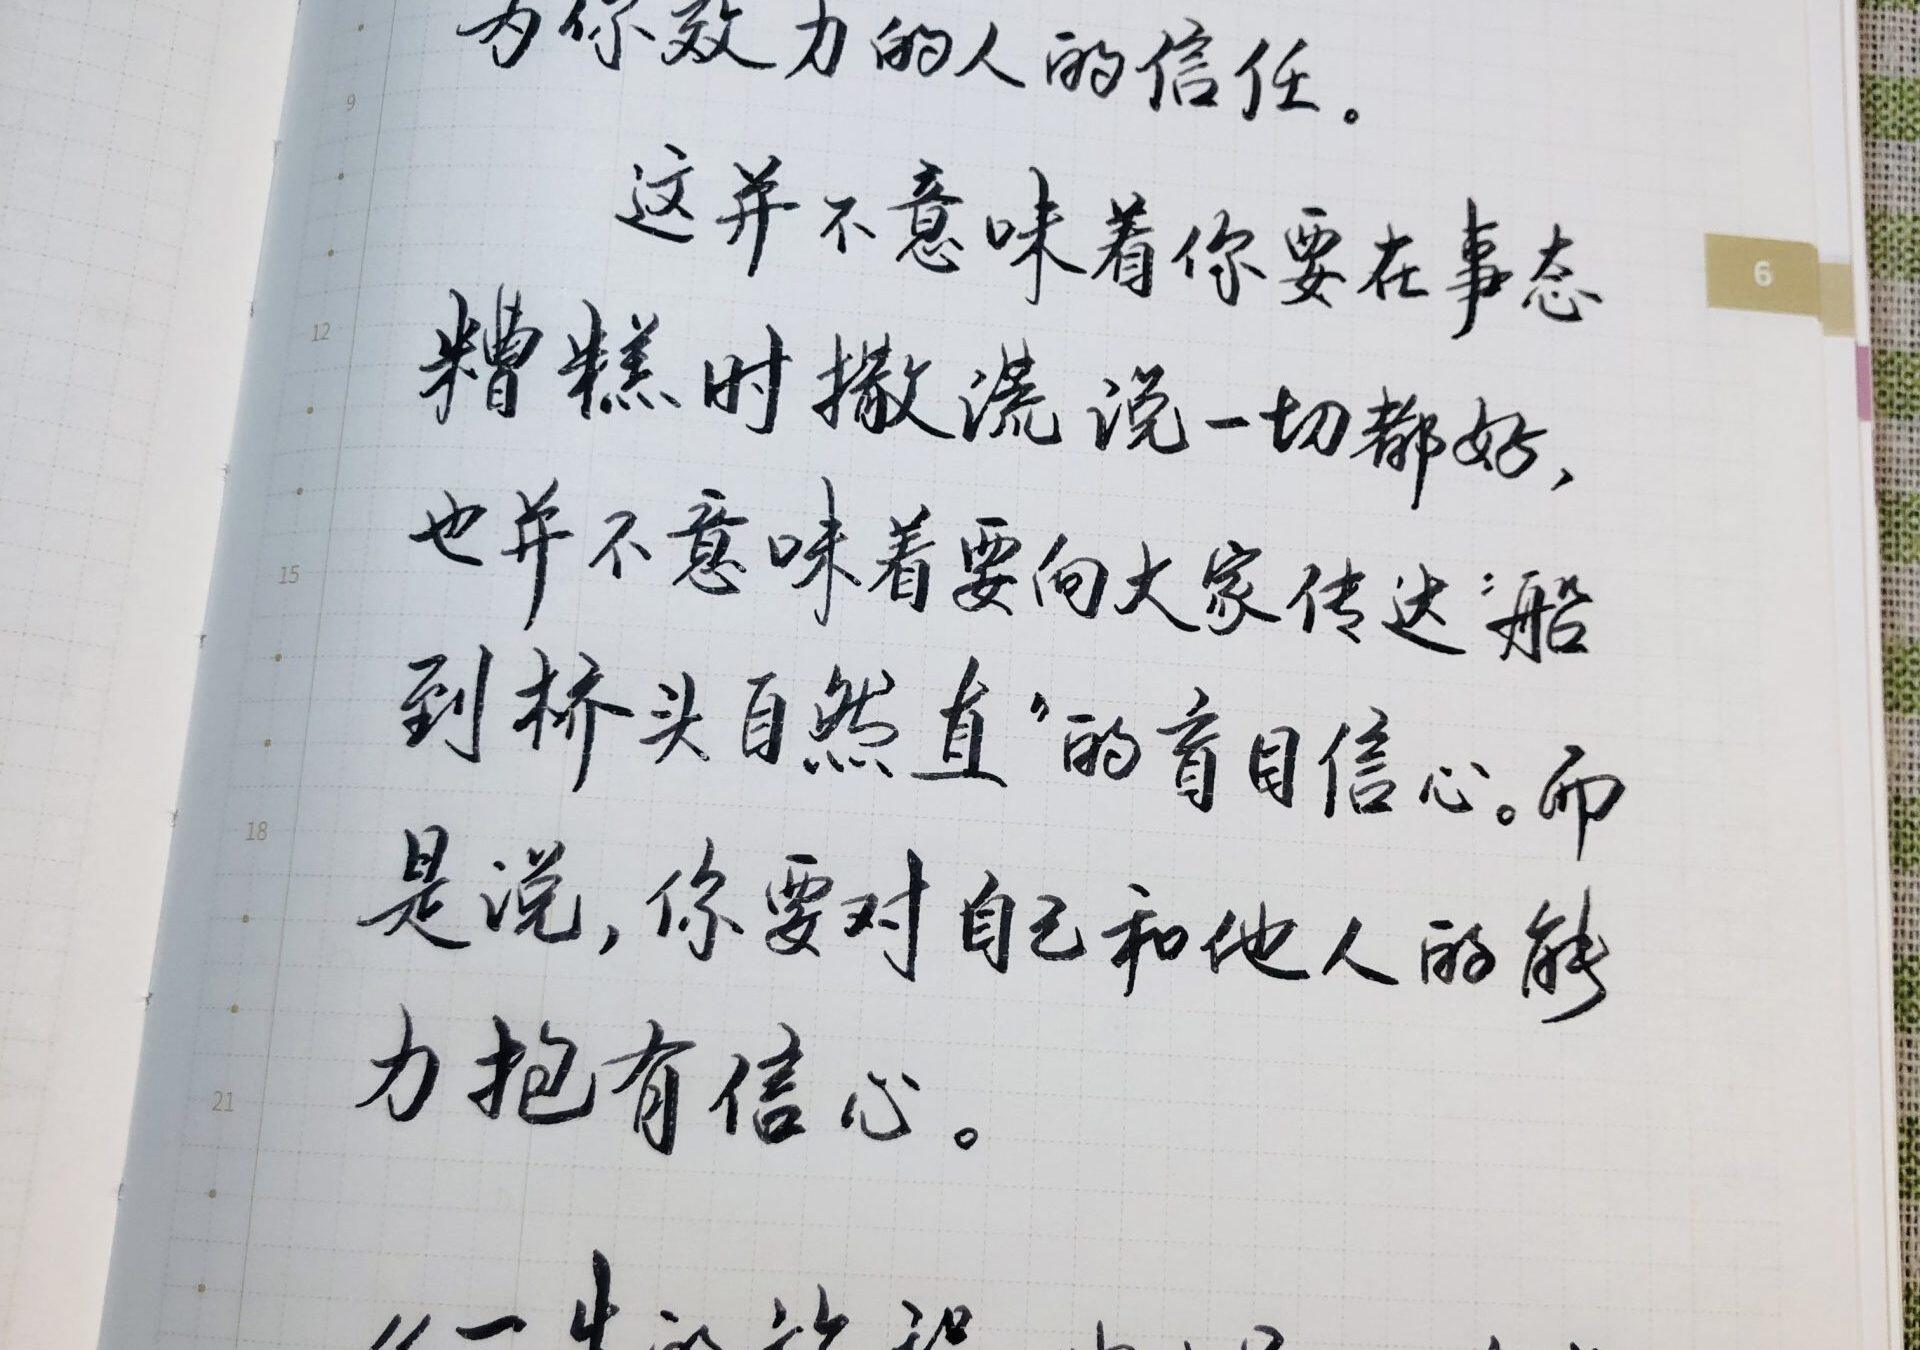 为你效力的人的信任。
9
这并不意味着你要在事态
6
12
糟糕时撒谎说一切都好，
也并不意味着要向大家传达“船
15
到桥头自然直”的盲目信心。而
18
是说，你要对自己和他人的能
力抱有信心。
21
《一生的旅程